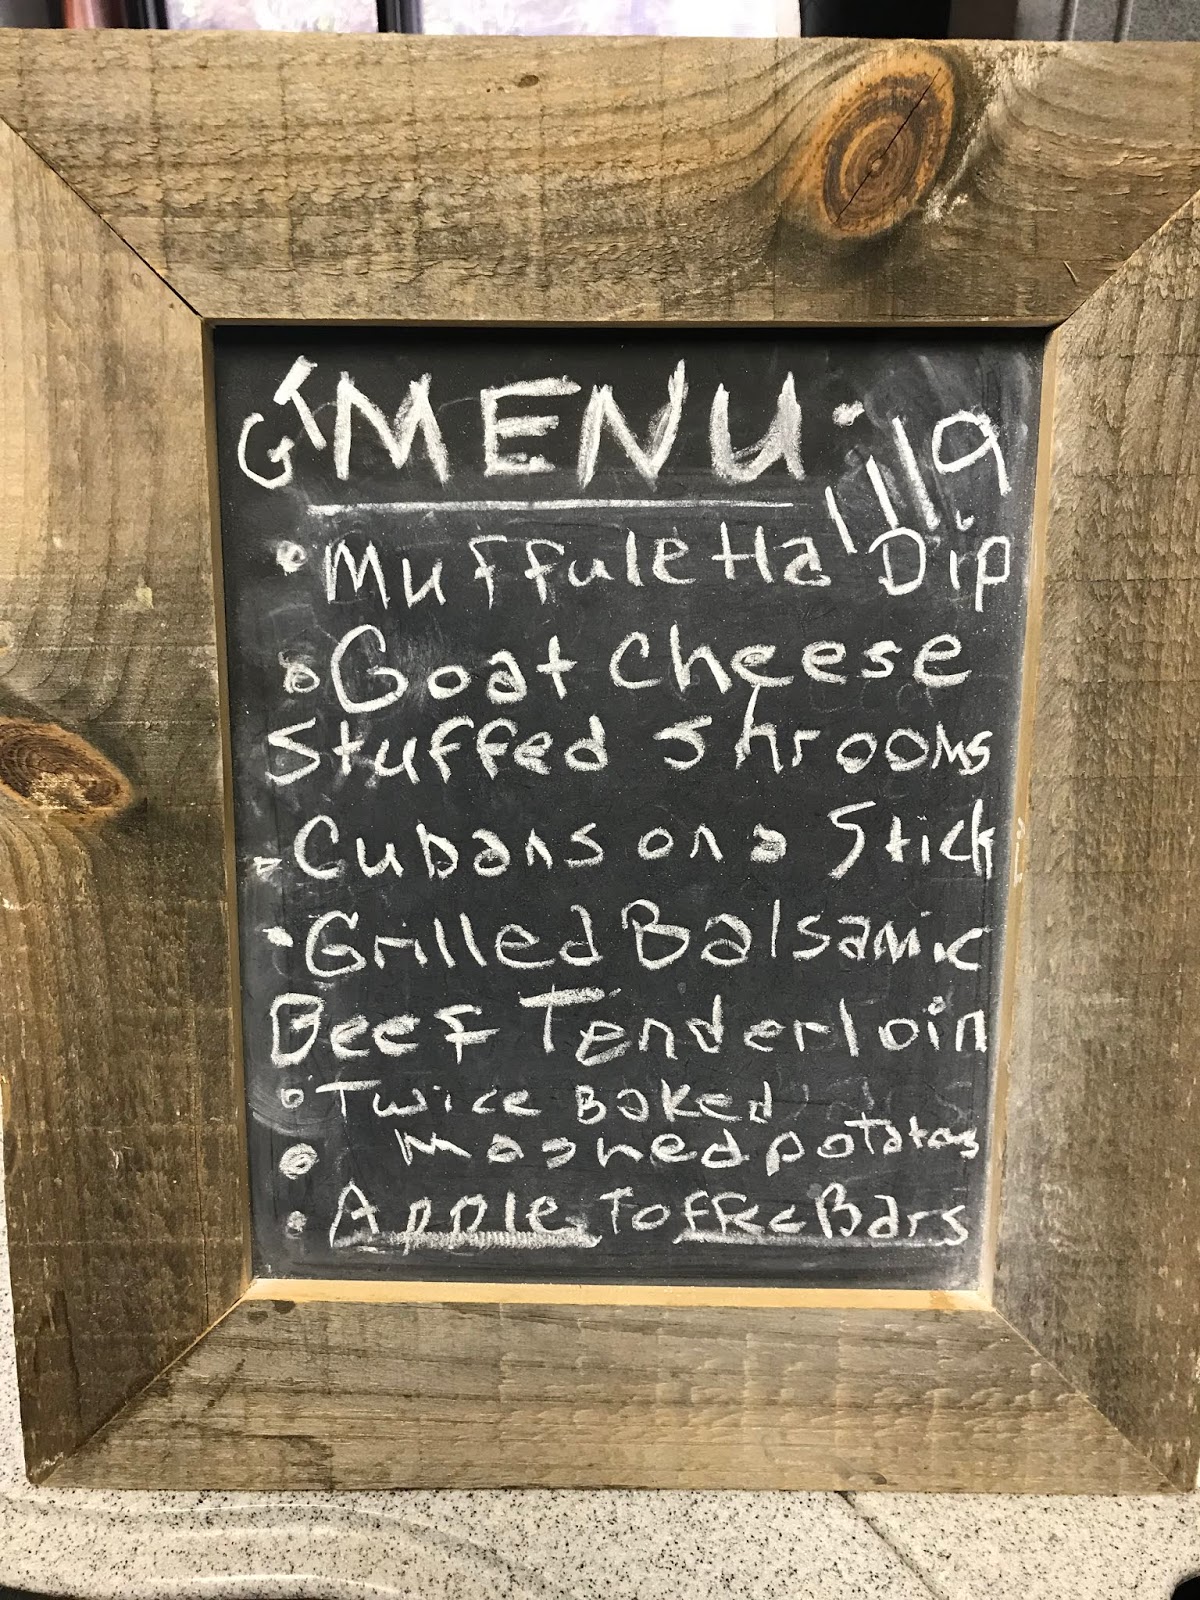 GT MENU: 1/1/19
• Muffuletta Dip
• Goat Cheese
Stuffed Shrooms
• Cubans on a Stick
• Grilled Balsamic
Beef Tenderloin
• Twice Baked
• Mashed potatoes
• Apple Toffee Bars